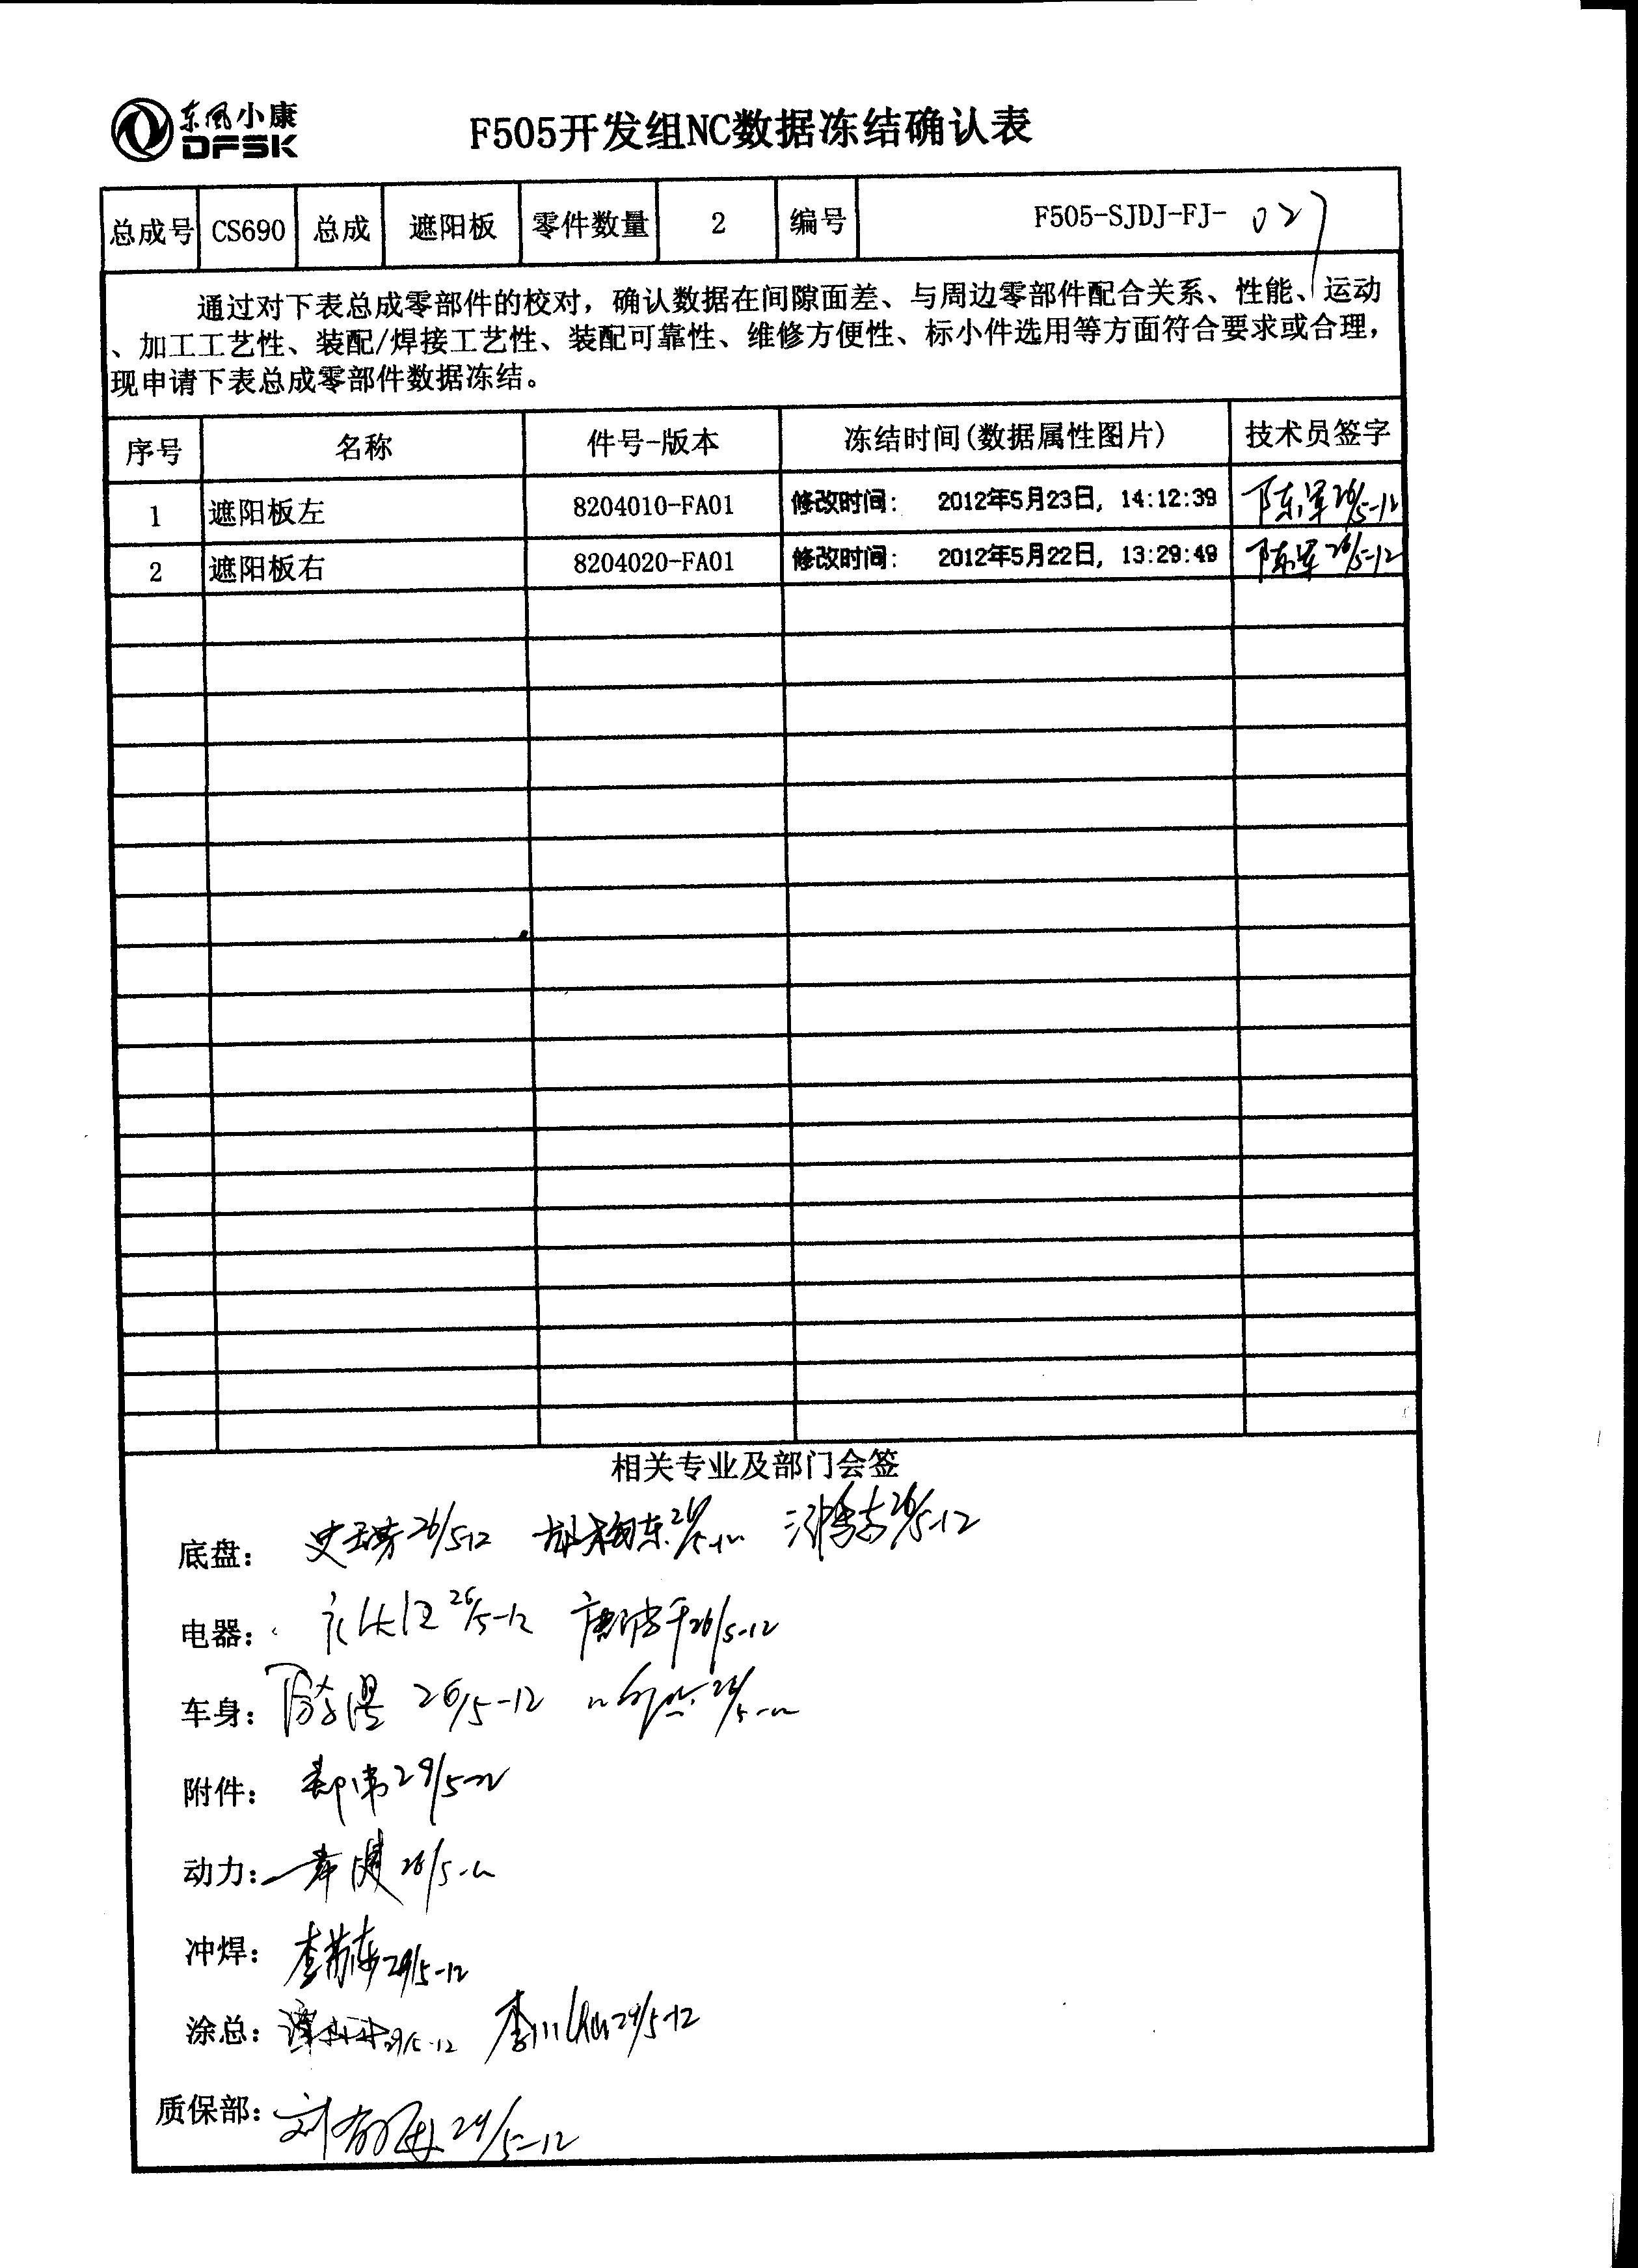 东风小康
DFSK
F505开发组NC数据冻结确认表
总成号 CS690 总成 遮阳板 零件数量 2 编号 F505-SJDJ-FJ-027
通过对下表总成零部件的校对，确认数据在间隙面差、与周边零部件配合关系、性能、运动
、加工工艺性、装配/焊接工艺性、装配可靠性、维修方便性、标小件选用等方面符合要求或合理，
现申请下表总成零部件数据冻结。
序号 名称 件号-版本 冻结时间(数据属性图片) 技术员签字
1 遮阳板左 8204010-FA01 修改时间： 2012年5月23日，14:12:39 陈军 26/5-12
2 遮阳板右 8204020-FA01 修改时间： 2012年5月22日，13:29:49 陈军 26/5-12
相关专业及部门会签
底盘： 26/5-12 26/5-12 26/5-12
电器： 26/5-12 26/5-12
车身： 26/5-12 26/5-12
附件： 29/5-12
动力： 26/5-12
冲焊： 29/5-12
涂总： 29/5-12 29/5-12
质保部： 29/5-12